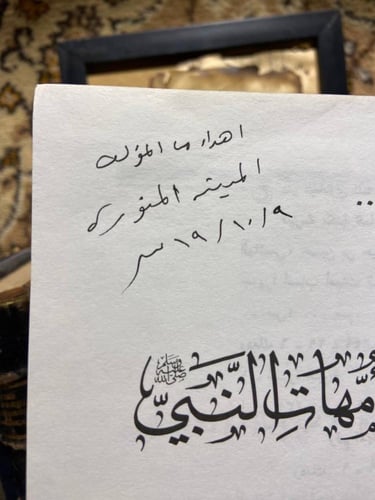 اهداء من المؤلف
المدينة المنوره
١٩/١٠/٩
أمَّهاتِ النَّبيِّ ﷺ